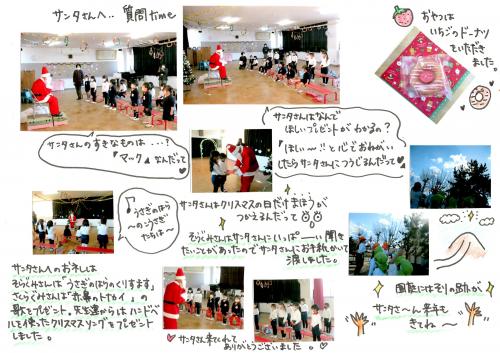 サンタさんへ.. 質問time
おやつは
いちごのドーナツ
でいただき
ました
サンタさんのすきなものは...!
「マック」なんだって
サンタさんはなんで
ほしいプレゼントがわかるの?
「ほしい~!!」と心でおねがい
したらサンタさんにつうじるんだって
サンタさんはクリスマスの日だけまほうが
つかえるんだって
うさぎのはら
~のこうさぎ
たちは~
そらぐみさんはサンタさんにいっぱーーい聞き
たいことがあったのでサンタさんにお手紙かいて
渡しました。
サンタさんへのお礼は
そらぐみさんは「うさぎのはらのくりすます」
さくらぐみさんは「赤鼻のトナカイ」の
歌をプレゼント。先生達からはハンドベ
ルを使ったクリスマスソングをプレゼント
しました。
サンタさん来てくれて
ありがとうございました。
園庭にはそりの跡が
サンタさ~ん来年も
きてね~